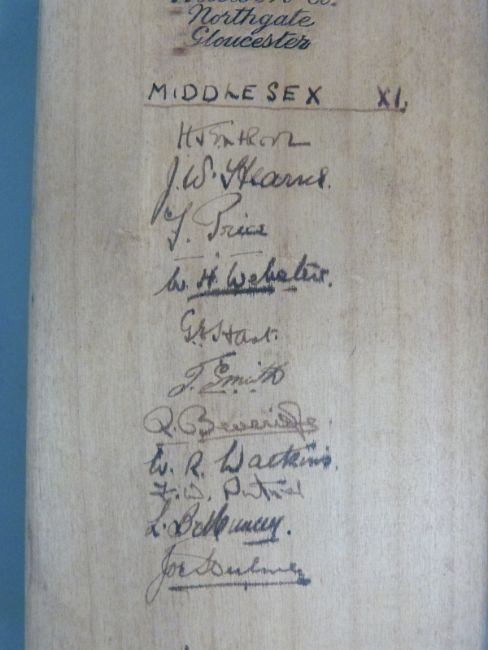 Northgate
Gloucester
MIDDLESEX XI.
J. W. Hearne.
F. Price
W. H. Webster.
G. E. Hart.
J. Smith
R. Beveridge.
W. R. Watkins.
F. W. Putner
L. B. Muncey.
Joe Hulme